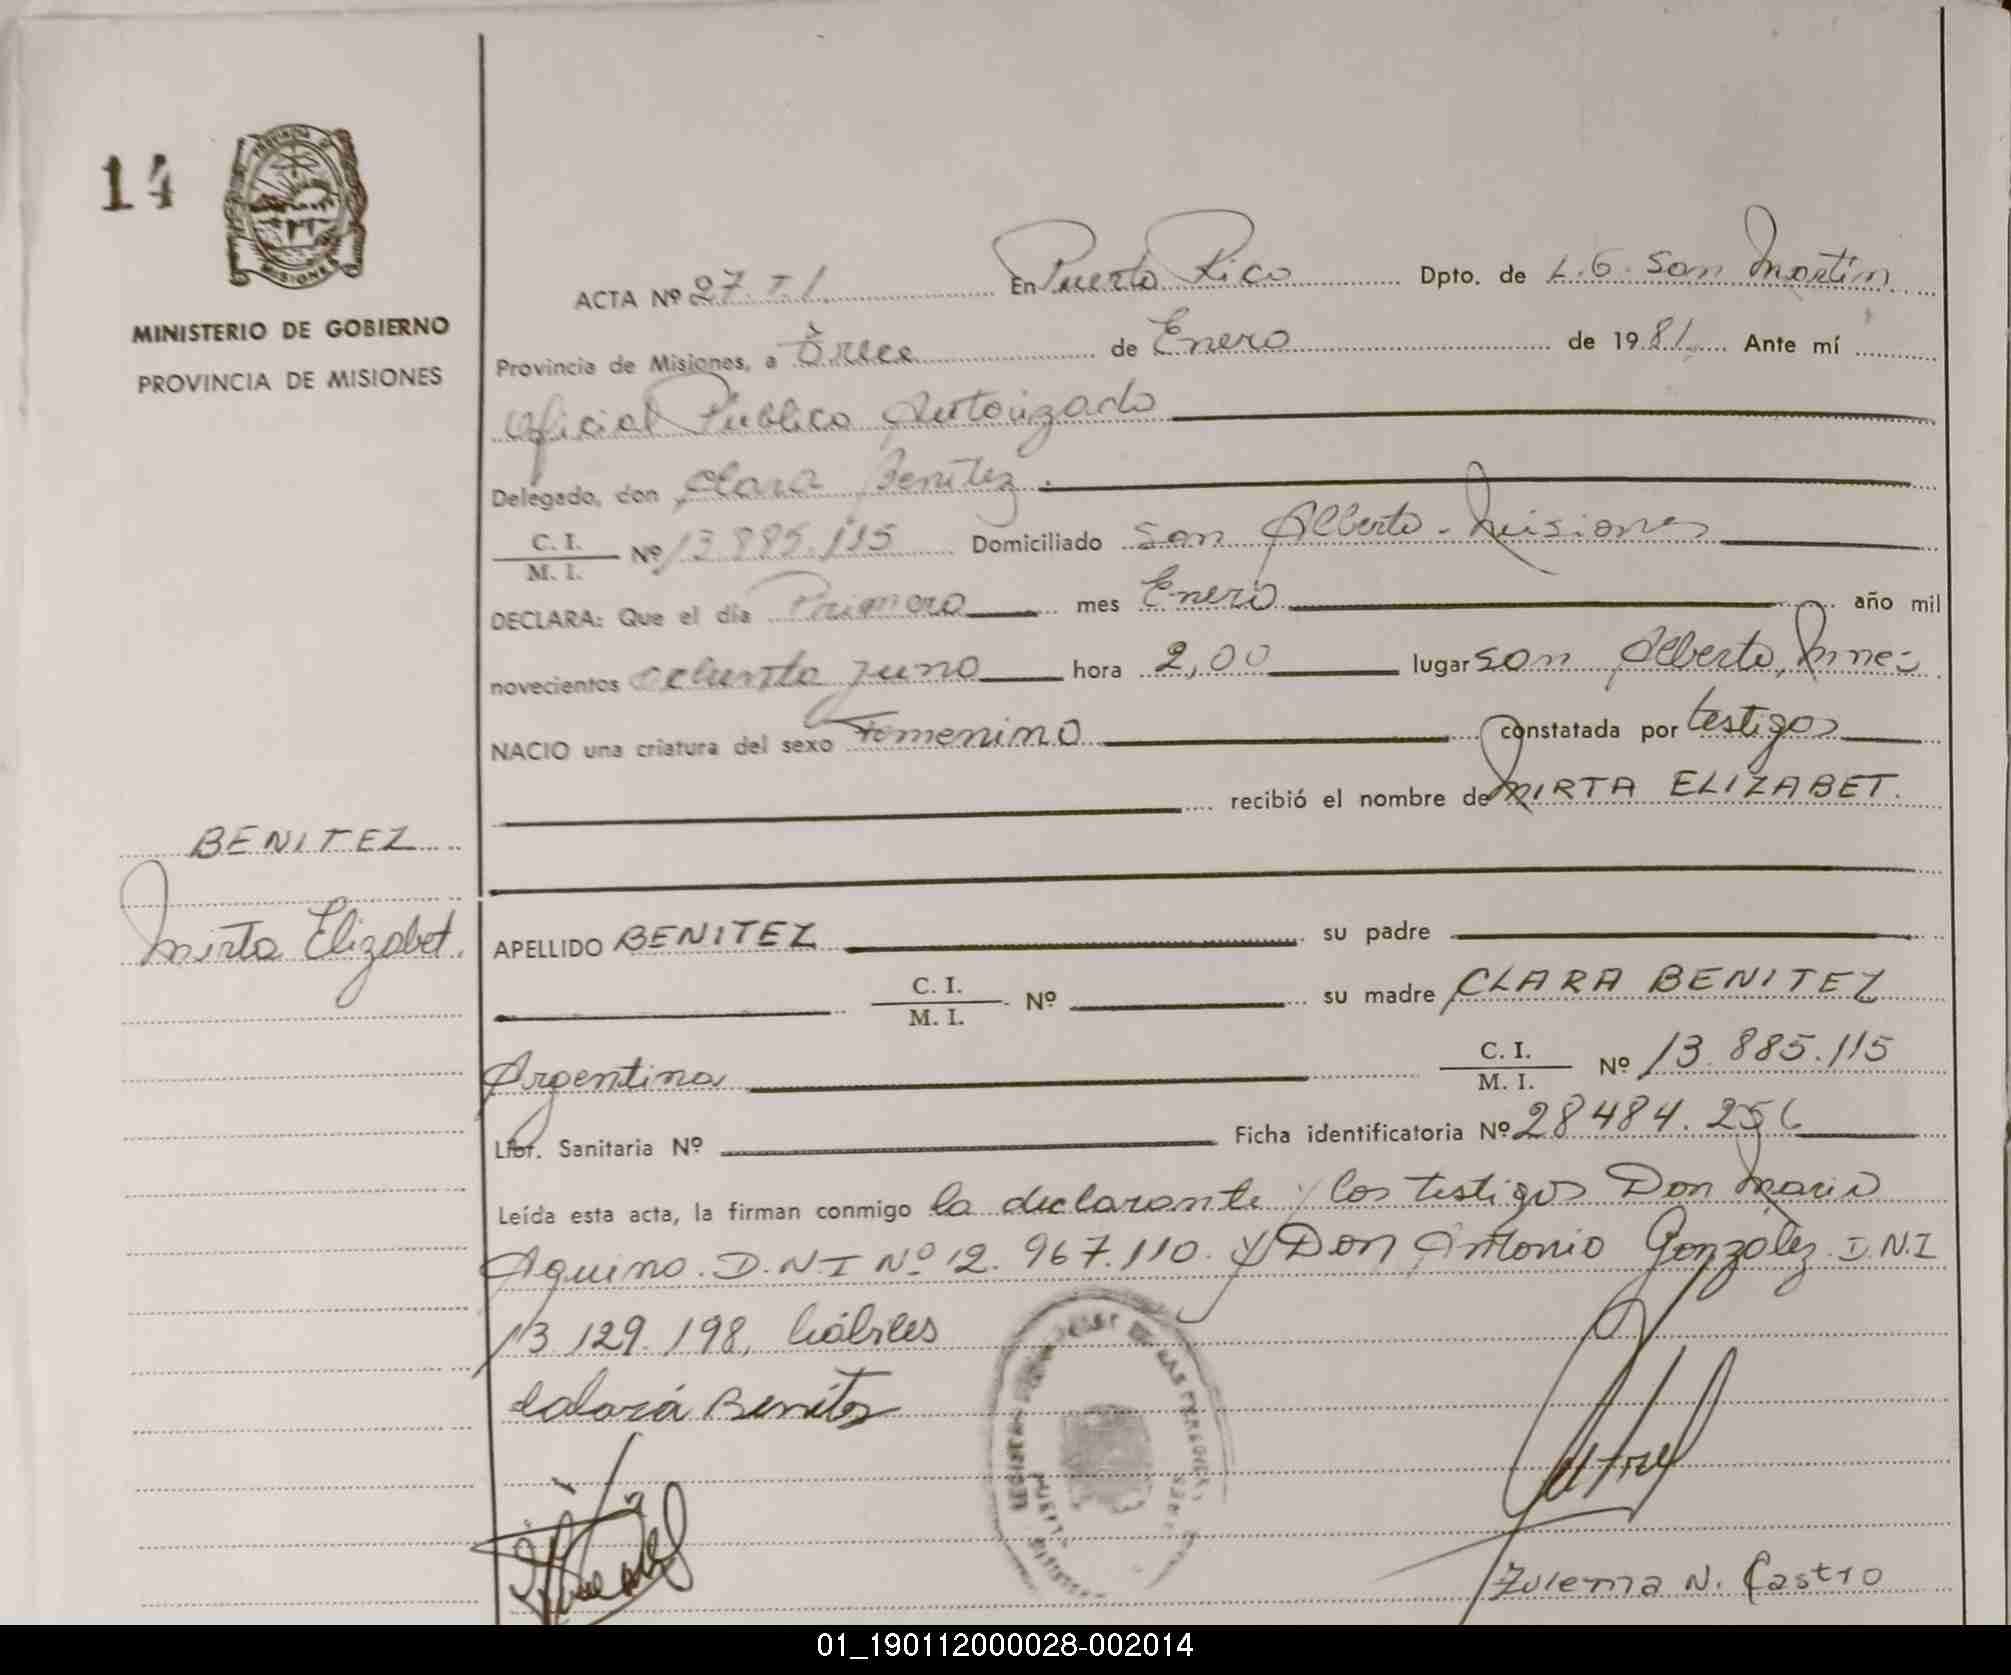 14
MINISTERIO DE GOBIERNO
PROVINCIA DE MISIONES
BENITEZ
Mirta Elizabet.
ACTA Nº 27. T. I. En Puerto Rico Dpto. de L. G. San Martín
Provincia de Misiones, a Trece de Enero de 1981. Ante mí
Oficial Publico Autorizado
Delegado, don Clara Benitez.
C. I.
M. I. Nº 13.885.115 Domiciliado San Alberto - Misiones
DECLARA: Que el día Primero mes Enero año mil
novecientos ochenta y uno hora 2,00 lugar San Alberto, Mnes
NACIO una criatura del sexo Femenino constatada por testigos
recibió el nombre de MIRTA ELIZABET.
APELLIDO BENITEZ su padre
C. I.
M. I. Nº su madre CLARA BENITEZ
Argentina C. I.
M. I. Nº 13.885.115
Libr. Sanitaria Nº Ficha identificatoria Nº 28484.256
Leída esta acta, la firman conmigo la declarante y los testigos Don Mario
Aquino. D.N.I Nº 12.967.110. y Don Antonio González. D.N.I
13.129.198, hábiles
Benítes
Zulema N. Castro
01_190112000028-002014